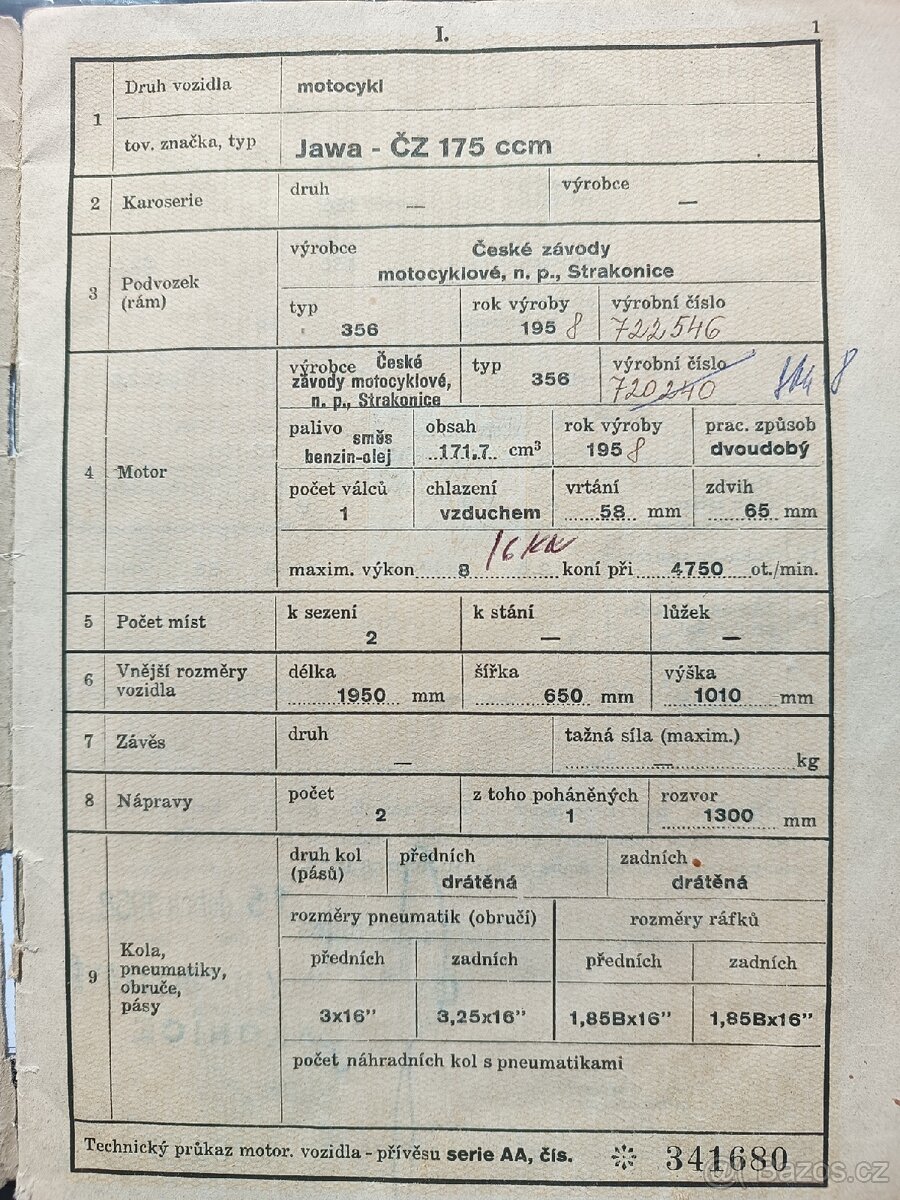 I.
1
1
Druh vozidla
motocykl
tov. značka, typ
Jawa - ČZ 175 ccm
2
Karoserie
druh
—
výrobce
—
3
Podvozek
(rám)
výrobce
České závody
motocyklové, n. p., Strakonice
typ
356
rok výroby
1958
výrobní číslo
722546
4
Motor
výrobce České
závody motocyklové,
n. p., Strakonice
typ
356
výrobní číslo
720240
palivo
směs
benzin-olej
obsah
171.7 cm³
rok výroby
1958
prac. způsob
dvoudobý
počet válců
1
chlazení
vzduchem
vrtání
58 mm
zdvih
65 mm
maxim. výkon 8 koní při 4750 ot./min.
5
Počet míst
k sezení
2
k stání
—
lůžek
—
6
Vnější rozměry
vozidla
délka
1950 mm
šířka
650 mm
výška
1010 mm
7
Závěs
druh
—
tažná síla (maxim.)
— kg
8
Nápravy
počet
2
z toho poháněných
1
rozvor
1300 mm
9
Kola,
pneumatiky,
obruče,
pásy
druh kol
(pásů)
předních
drátěná
zadních
drátěná
rozměry pneumatik (obručí)
rozměry ráfků
předních
zadních
předních
zadních
3x16”
3,25x16”
1,85Bx16”
1,85Bx16”
počet náhradních kol s pneumatikami
Technický průkaz motor. vozidla - přívěsu serie AA, čís. 341680
Bazos.cz